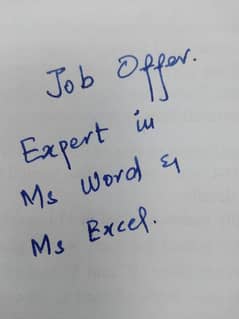 Job Offer.
Expert in
Ms Word &
Ms Excel.